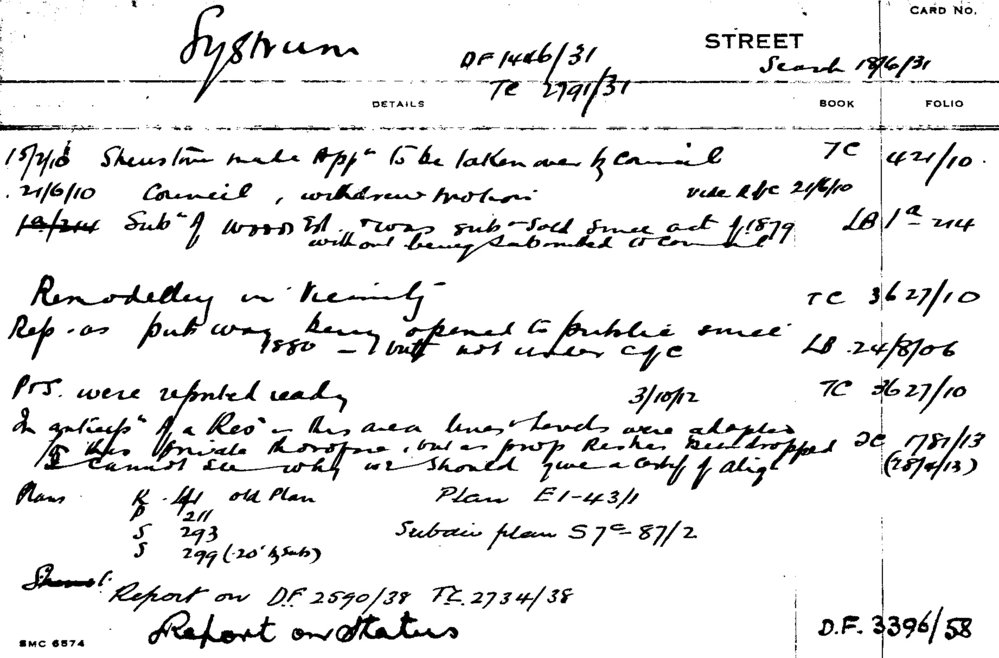 CARD No.
Systrum STREET
DF 1446/31 Search 18/6/31
TC 2791/31
DETAILS BOOK FOLIO
15/2/10 made Appn to be taken over by Council TC 421/10
21/6/10 Council, withdrew motion vide 21/6/10
1a/214 Subn of Wood Est. & was sub-sold since act of 1879 LB 1a 214
without being submitted to Council
Remodelling in Vicinity TC 3627/10
Rep. as pub way being opened to public since
1880 - but not under LB 24/8/06
P&S. were reported ready 3/10/12 TC 3627/10
In anticipn of a Res" in this area lines & levels were adopted
to this private thorofare, but as prop Res has been dropped TC 1781/13
I cannot see why we should give a Certif of Align (28/4/13)
Plans K 41 old Plan Plan E1-43/1
P 211
S 293 Subdiv plan S7c-87/2
S 299 (20' by Subs)
Report on D.F. 2590/38 TC. 2734/38
Report on Status D.F. 3396/58
SMC 6574